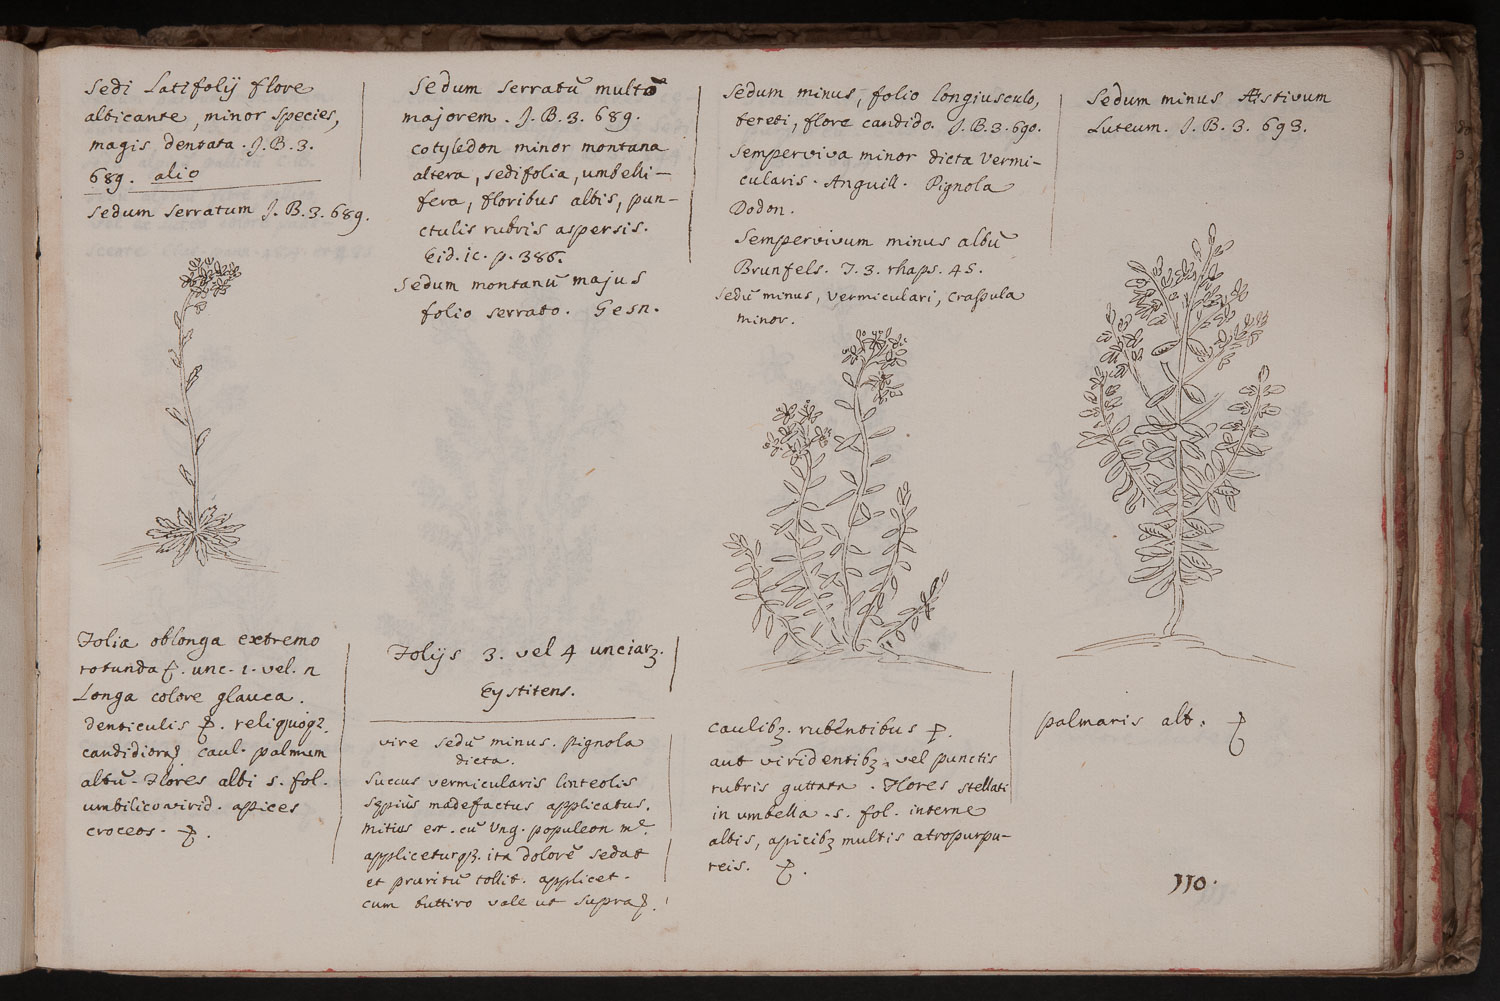 Sedi Latifolij flore
albicante, minor species,
magis dentata. J. B. 3.
689. alio
Sedum serratum J. B. 3. 689.
Folia oblonga extremo
rotunda. unc. 1. vel. n
Longa colore glauca.
denticulis. reliquoqz.
candidiora caul. palmum
altū. Flores albi s. fol.
umbilico virid. apices
croceos.
Sedum serratū multo
majorem. J. B. 3. 689.
cotyledon minor montana
altera, sedifolia, umbelli-
fera, floribus albis, pun-
ctulis rubris aspersis.
Eid. ic. p. 386.
Sedum montanū majus
folio serrato. Gesn.
Folijs 3. vel 4 unciarz.
Eystitens.
vire sedū minus. Pignola
dicta.
Succus vermicularis linteolis
madefactus applicatus.
mitius est. cū Ung. populeon
appliceturqz. ita dolorē sedat
et pruritū tollit. applicet.
cum buttiro vale ut supra.
Sedum minus, folio longiusculo,
tereti, flore candido. J. B. 3. 690.
Semperviva minor dicta Vermi-
cularis. Anguill. Pignola
Dodon.
Sempervivum minus albū
Brunfels. T. 3. rhaps. 45.
Sedū minus, vermiculari, Crassula
minor.
caulibz. rubentibus
aut viridentibz, vel punctis
rubris guttata. Flores stellati
in umbella. s. fol. interne
albis, apicibz multis atropurpu-
reis.
Sedum minus Æstivum
Luteum. J. B. 3. 693.
palmaris alt.
110.